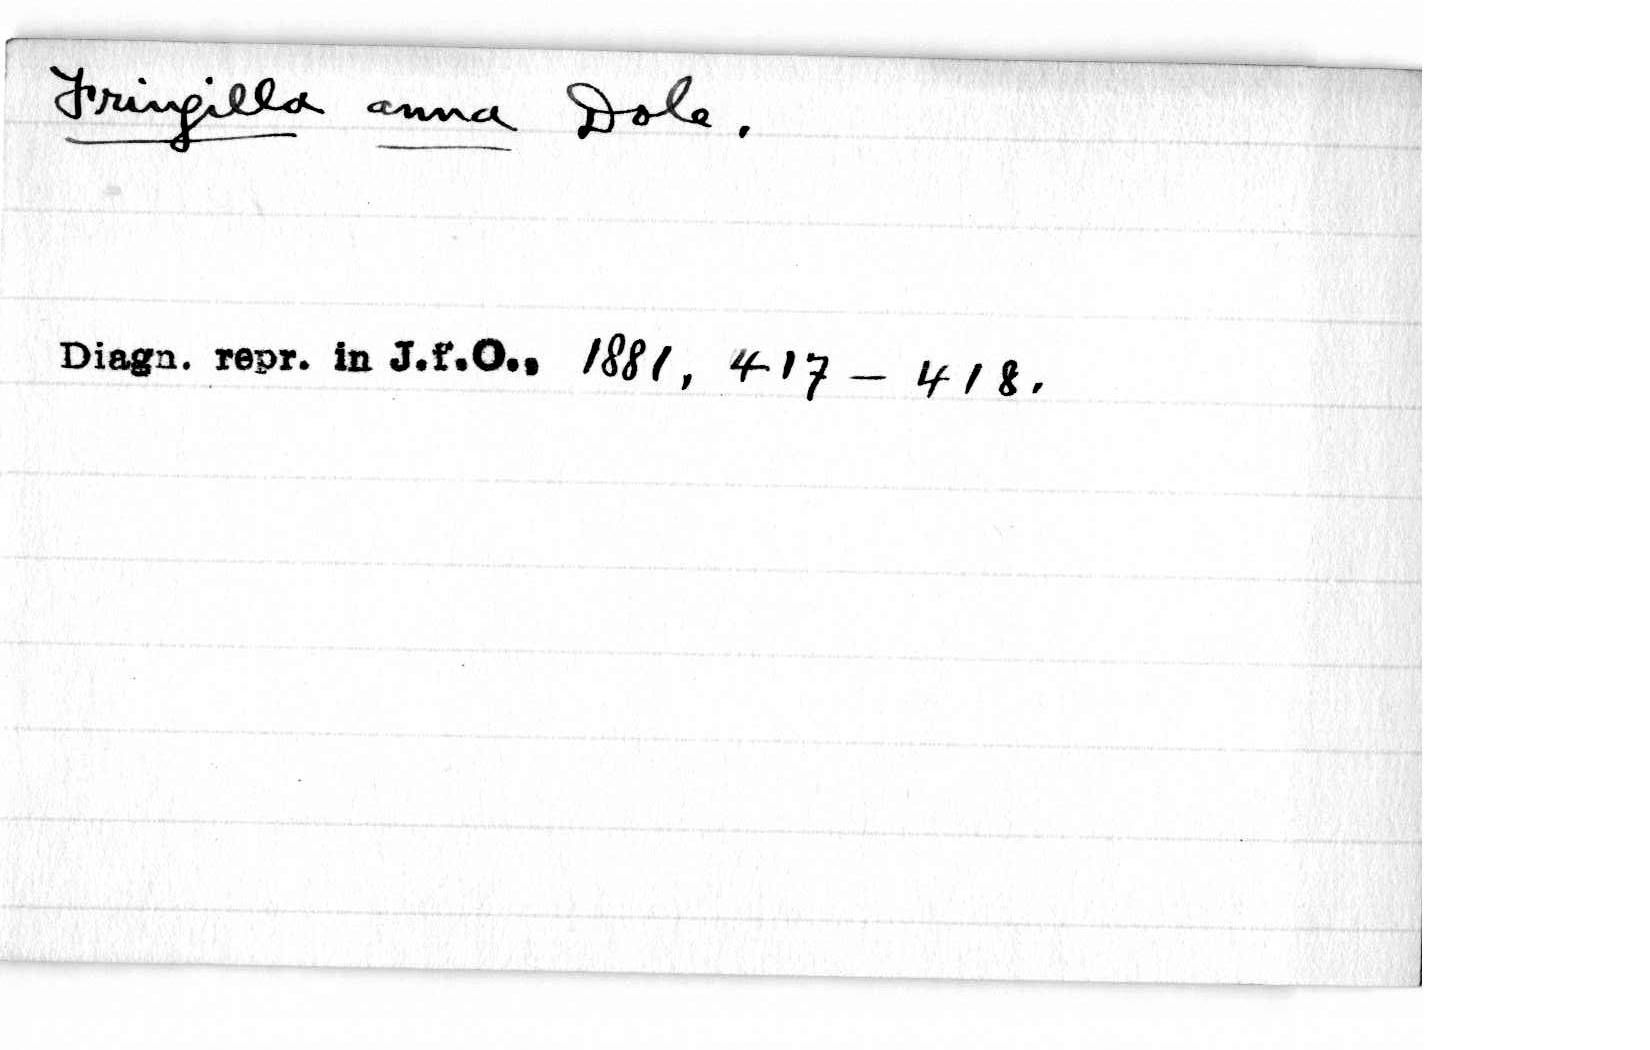 Fringilla anna Dole.
Diagn. repr. in J.f.O., 1881, 417 – 418.